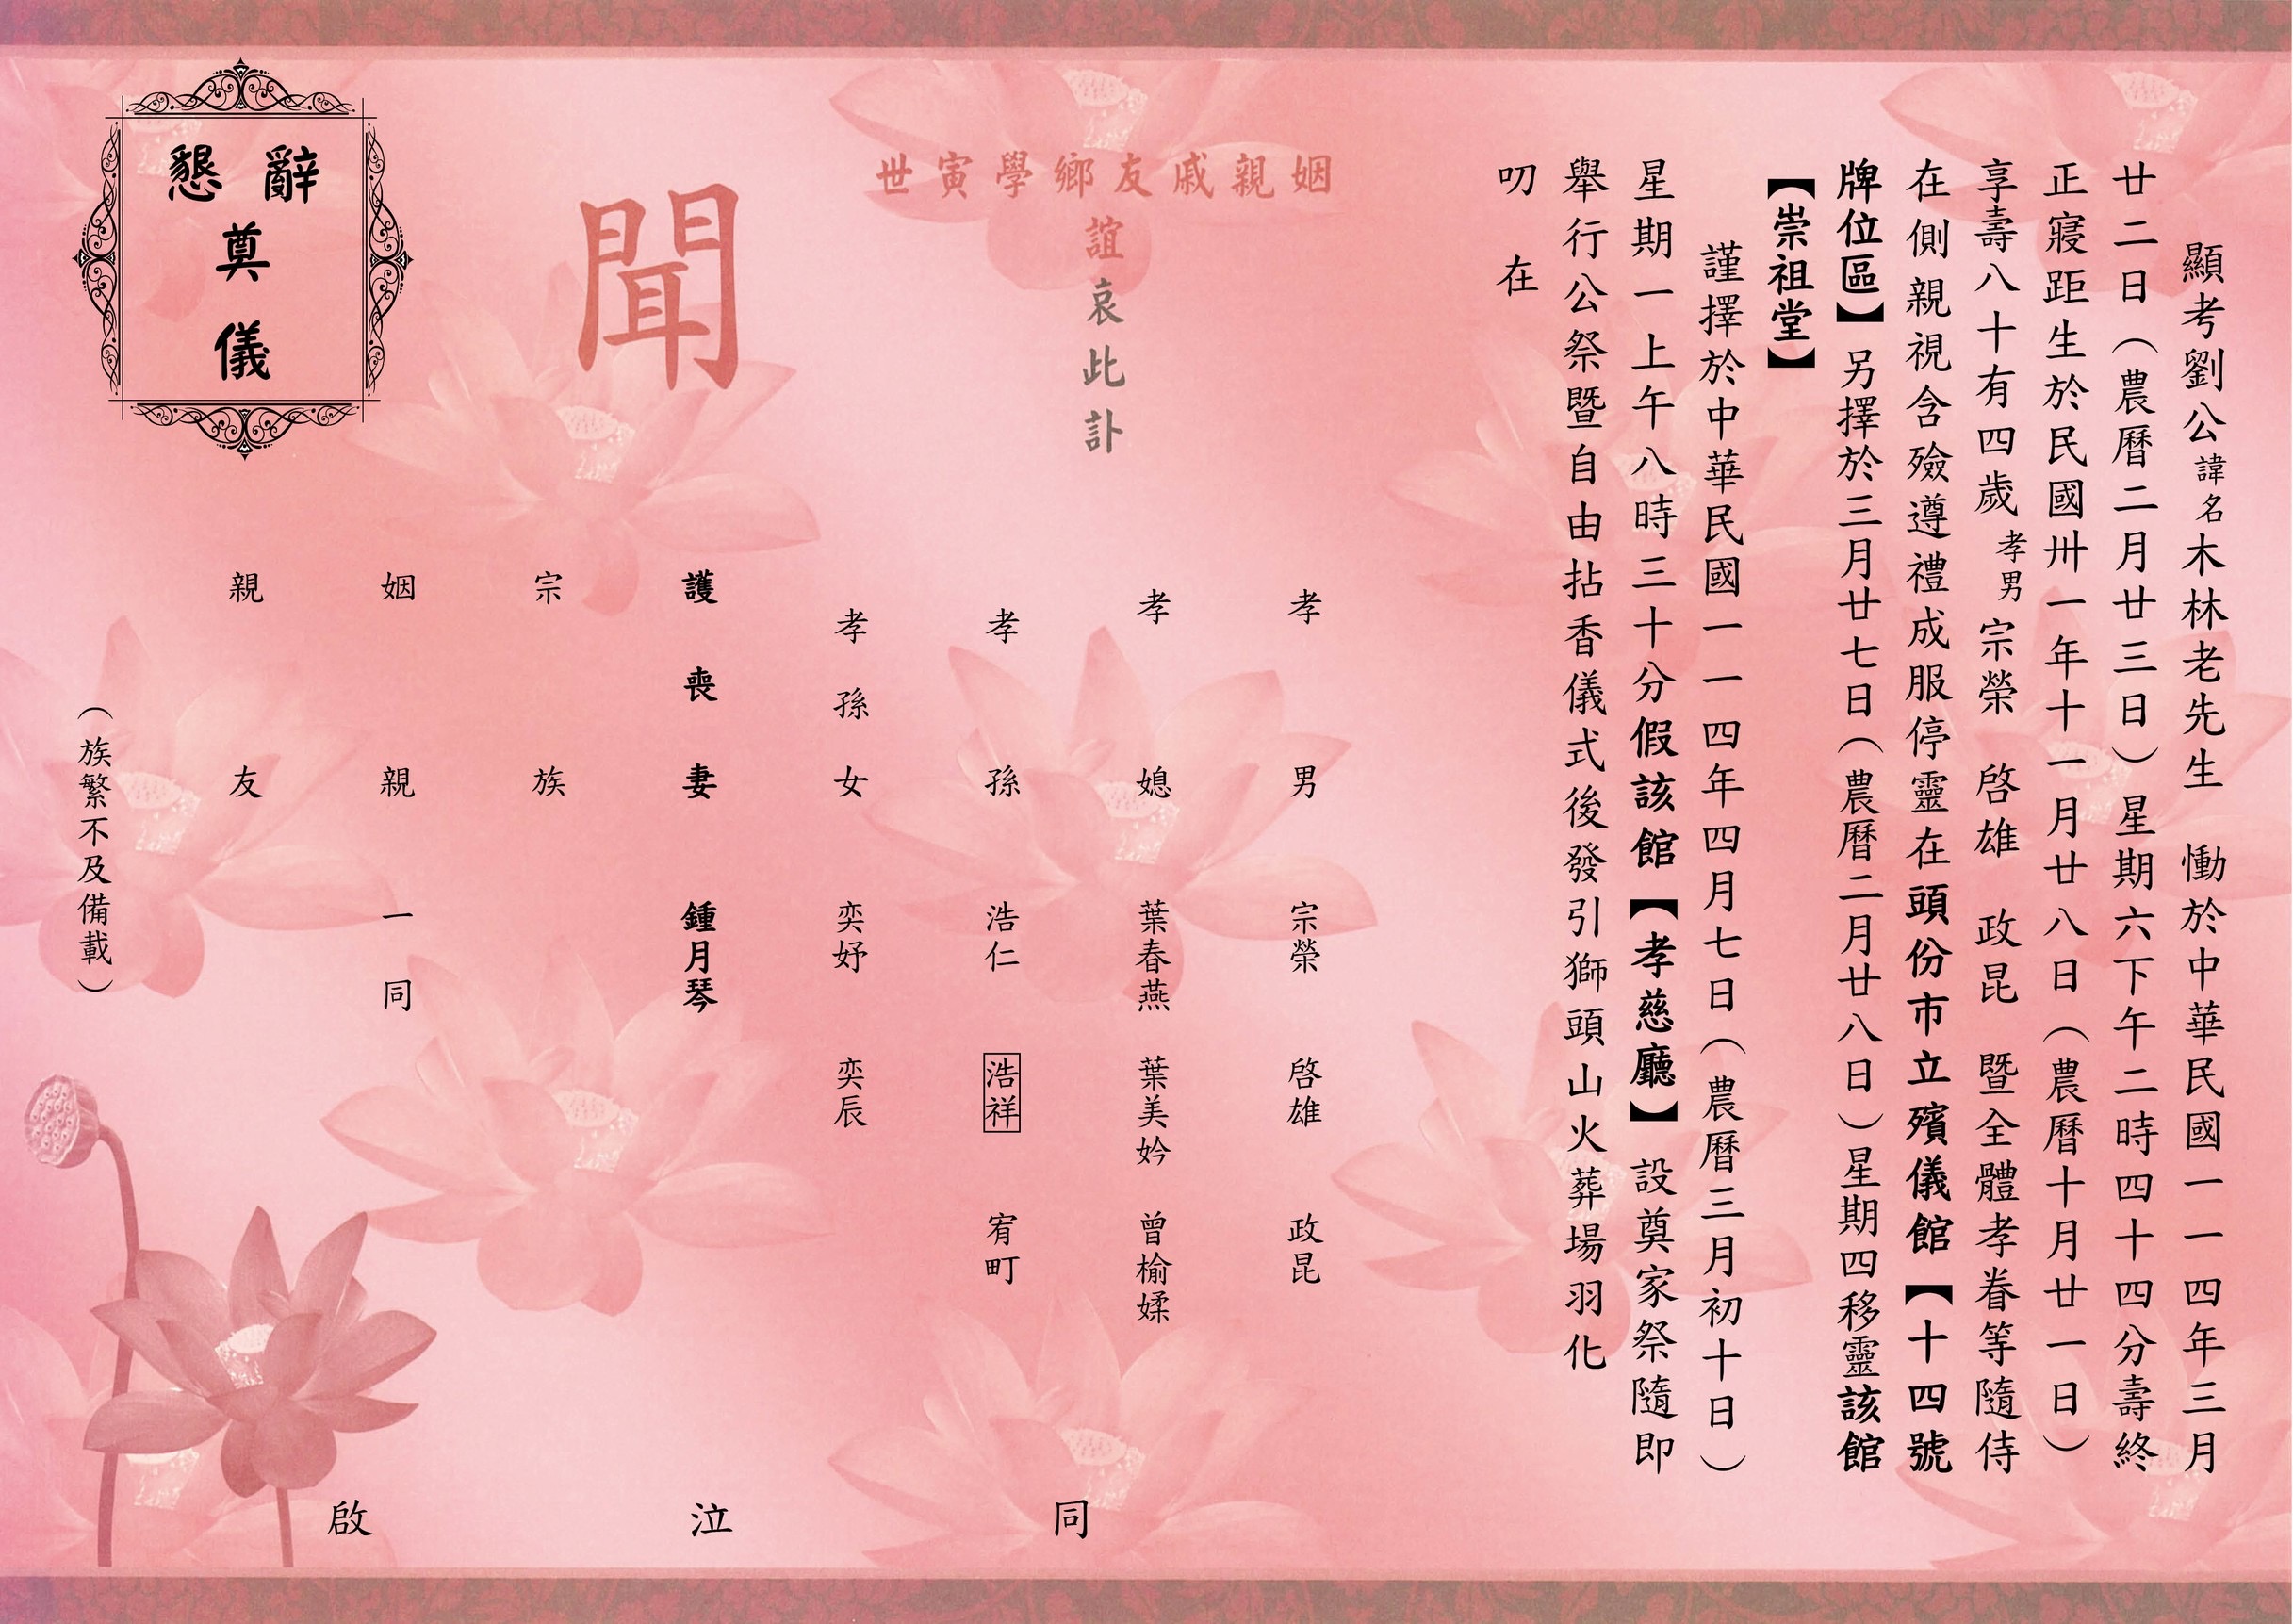 顯考劉公諱名木林老先生 慟於中華民國一一四年三月
廿二日（農曆二月廿三日）星期六下午二時四十四分壽終
正寢距生於民國卅一年十一月廿八日（農曆十月廿一日）
享壽八十有四歲孝男宗榮 啓雄 政昆 暨全體孝眷等隨侍
在側親視含殮遵禮成服停靈在頭份市立殯儀館【十四號
牌位區】另擇於三月廿七日（農曆二月廿八日）星期四移靈該館
【崇祖堂】
謹擇於中華民國一一四年四月七日（農曆三月初十日）
星期一上午八時三十分假該館【孝慈廳】設奠家祭隨即
舉行公祭暨自由拈香儀式後發引獅頭山火葬場羽化
叨 在
姻親戚友鄉學寅世
誼哀此訃
聞
懇辭
奠
儀
孝男 宗榮 啓雄 政昆
孝媳 葉春燕 葉美妗 曾榆媃
孝孫 浩仁 浩祥 宥町
孝孫女 奕妤 奕辰
護喪妻 鍾月琴
宗族
姻親 一同
親友
（族繁不及備載）
同泣啟